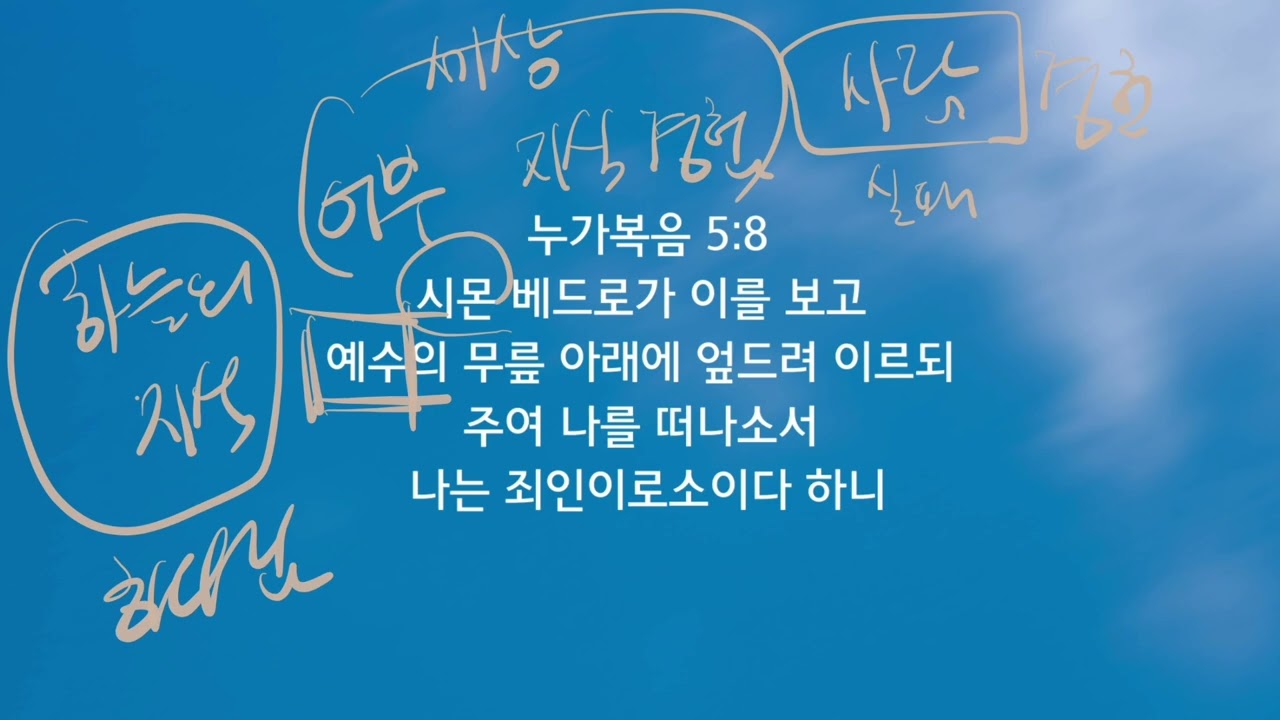 세상
사람 경험
지식 경험
어부
실패
누가복음 5:8
하늘의
시몬 베드로가 이를 보고
예수의 무릎 아래에 엎드려 이르되
지식
주여 나를 떠나소서
나는 죄인이로소이다 하니
하나님